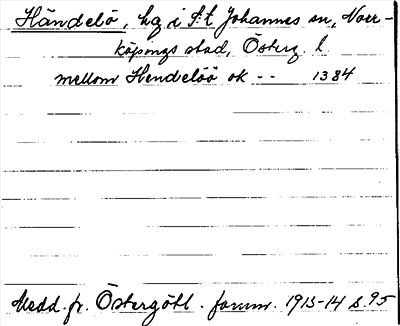 Händelö, hg i S:t Johannes sn, Norr-
köpings stad, Österg. l.
mellom Hendelöö ok -- 1384
Medd. fr. Östergötl. fornm. 1913-14 s. 95